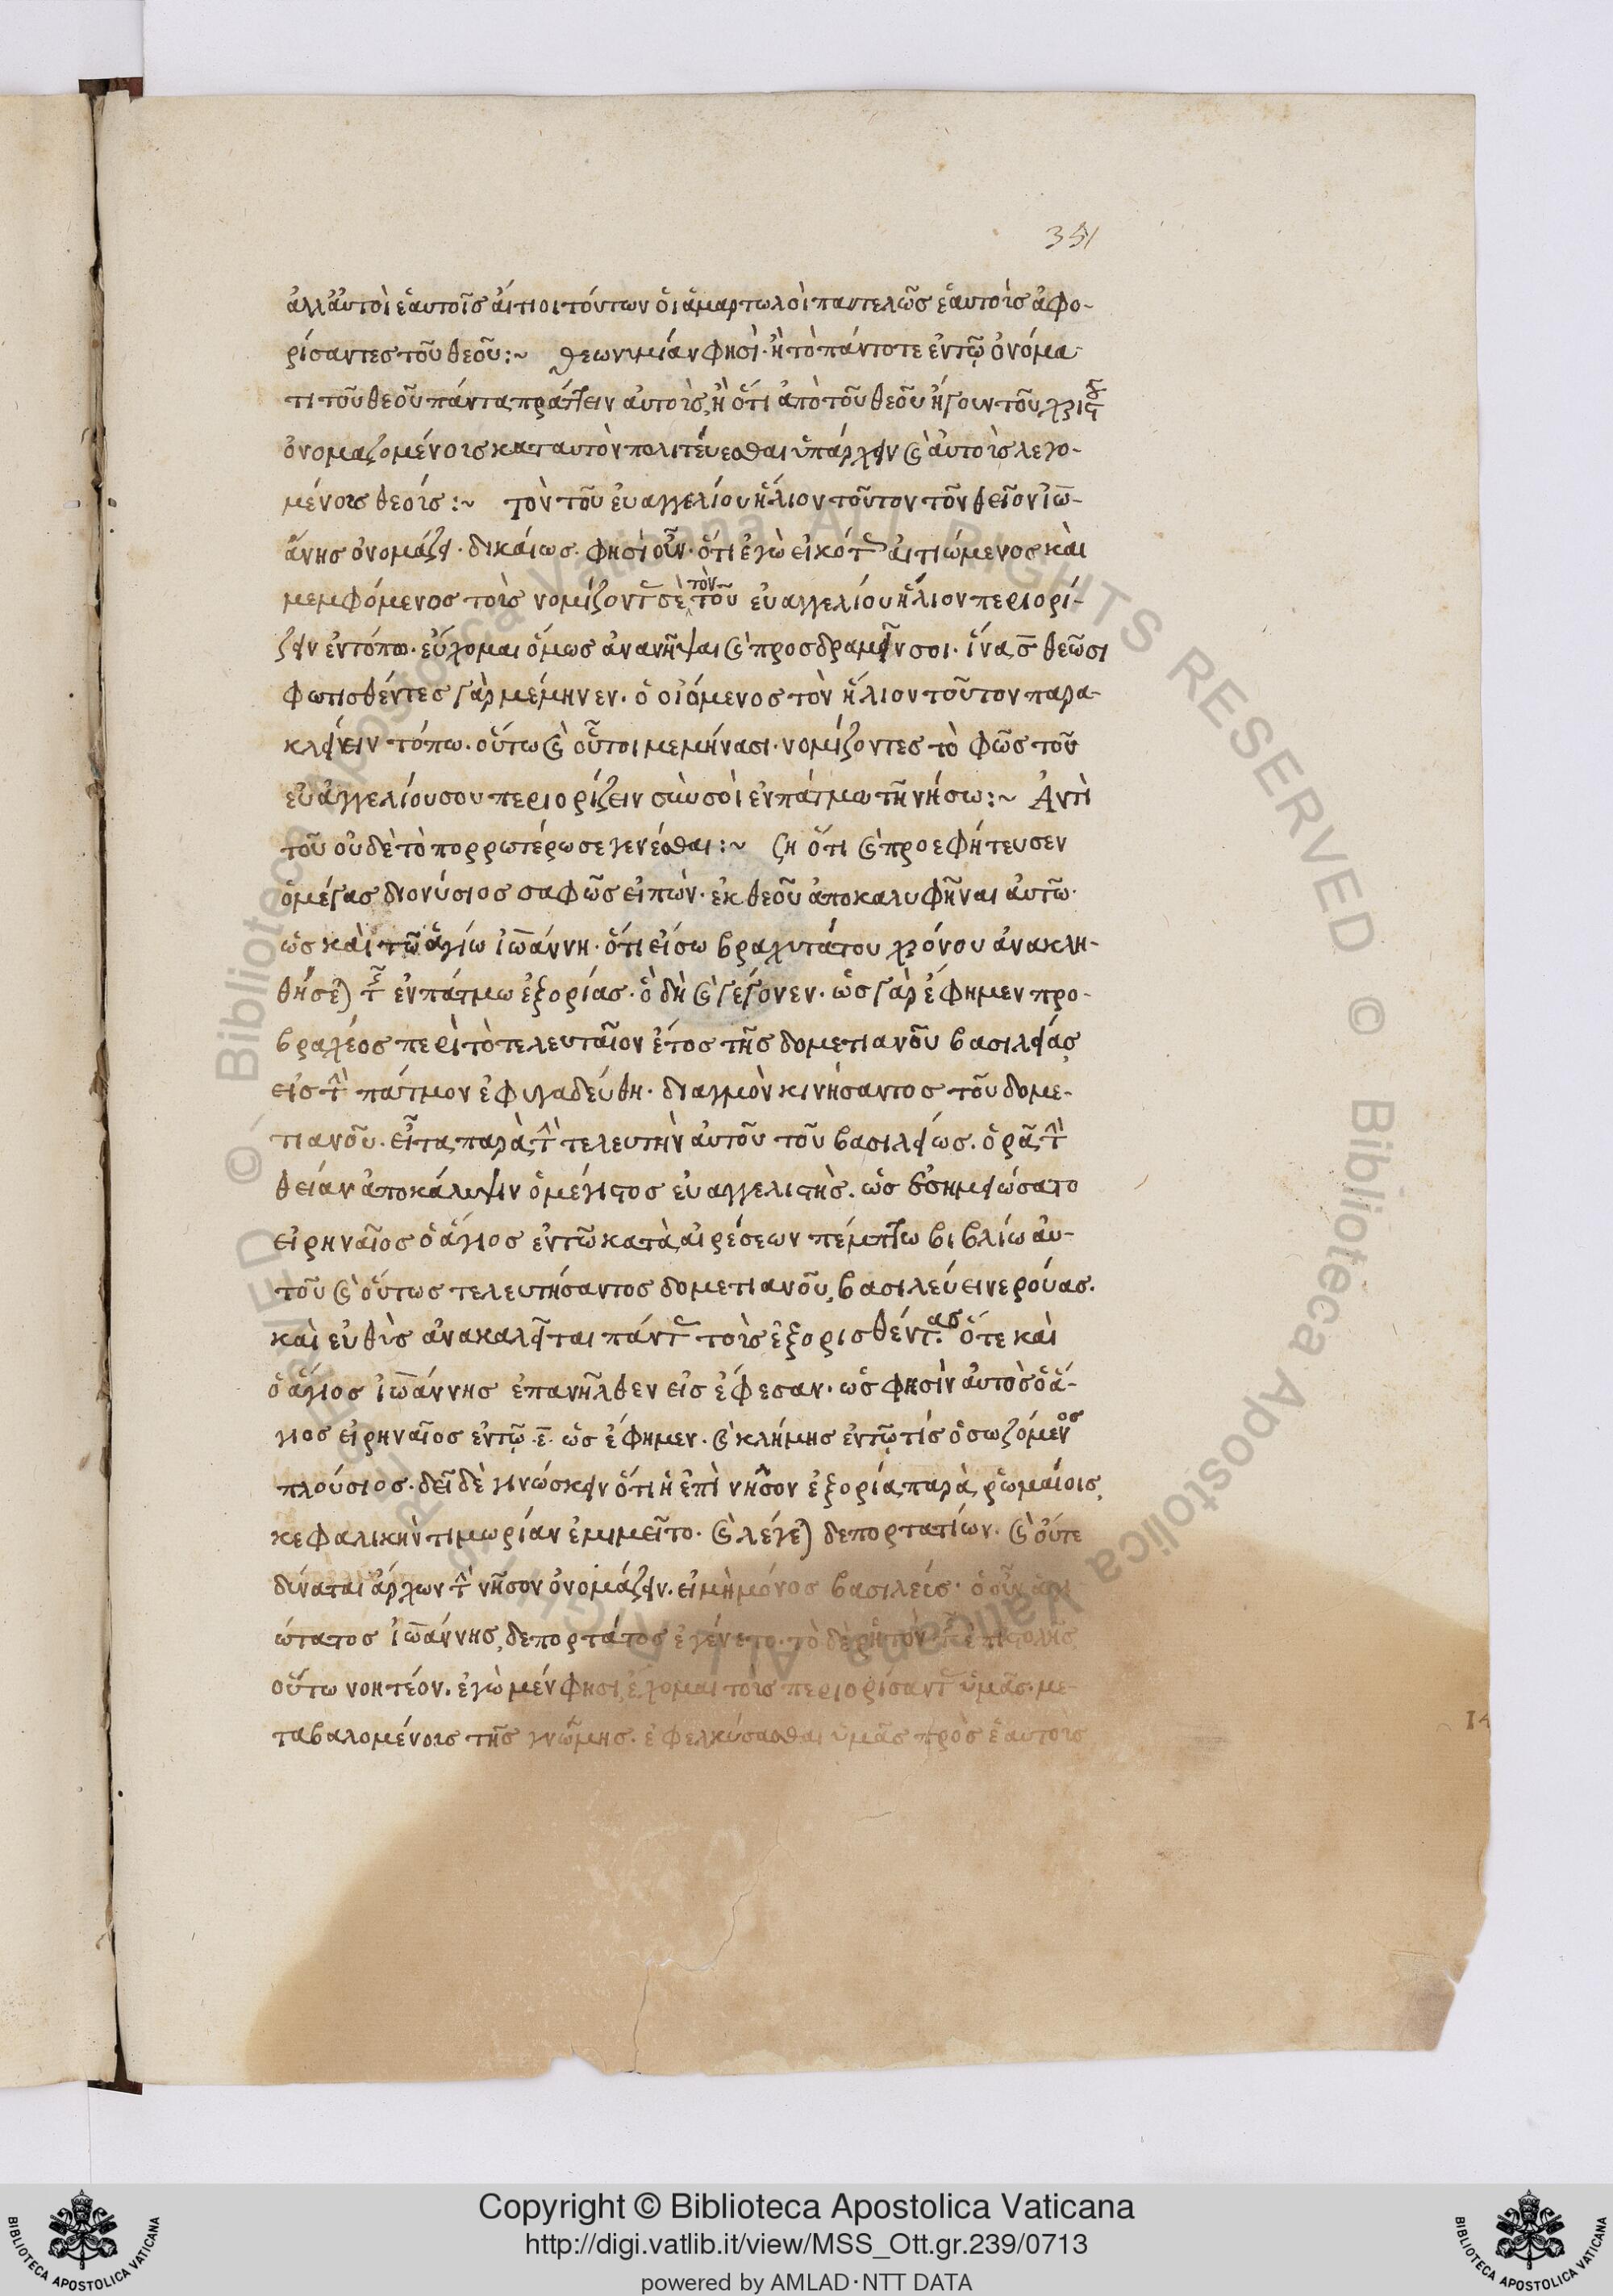 351
ἀλλ' αὐτοὶ ἑαυτοῖς αἴτιοι τόντων ὁι ἁμαρτωλοὶ παντελῶς ἑαυτοὶς ἀφο-
ρίσαντες τοῦ θεοῦ :~ θεωνυμίαν φησὶ· ἢ τὸ πάντοτε ἐν τῷ ὀνόμα
τι τοῦ θεοῦ πάντα πράττειν αὐτοὶς, ἢ ὅτι ἀπὸ τοῦ θεοῦ ἤγουν τοῦ χριστοῦ
ὀνομαζομένοις κατ αυτὸν πολιτεύεσθαι ὑπάρχειν καὶ ἀυτοὶς λεγο-
μένοις θεοίς :~ τὸν τοῦ ἐυαγγελίου ἥλιον τοῦτον τὸν θεῖον ἰω-
άνης ὀνομάζει· δικάιως φησὶ οὖν· ὅτι ἐγὼ εἰκότως ἀιτιώμενος καὶ
μεμφόμενος τοὶς νομίζοντας σὲ τὸν τοῦ ἐυαγγελίου ἥλιον περιορί-
ζειν ἐν τόπω· εὔχομαι ὅμως ἀνανῆψαι καὶ προσδραμεῖν σοι· ἵνα σωθεῶσι
φωτισθέντες γὰρ μέμηνεν· ὁ οἰόμενος τὸν ἥλιον τοῦτον παρα-
κλείνειν τόπω· οὕτω καὶ οὗτοι μεμήνασι· νομίζοντες τὸ φῶς τοῦ
εὐαγγελίου σου περιορίζειν σὺν σοὶ ἐν πάτμω τῆ νήσω :~ Ἀντὶ
τοῦ οὐδὲ τὸ πορρωτέρω σε γενέσθαι :~ ζη ὅτι καὶ προεφήτευσεν
ὁ μέγας διονύσιος σαφῶς εἰπών· ἐκ θεοῦ ἀποκαλυφῆναι ἀυτῶ·
ὡς καὶ τῶ ἁγίω ἰωάννη· ὅτι εἴσω βραχυτάτου χρόνου ἀνακλη-
θήσεται τῆς ἐν πάτμω ἐξορίας· ὃ δὴ καὶ γέγονεν· ὡς γὰρ ἔφημεν προ-
βραχέος περὶ τὸ τελευταῖον ἔτος τῆς δομετιανοῦ βασιλείας
εἰς τὴν πάτμον ἐφυγαδεύθη· διωγμὸν κινήσαντος τοῦ δομε-
τιανοῦ· εἶτα παρὰ τὴν τελευτὴν ἀυτοῦ τοῦ βασιλείως· ὁρᾶ τὴν
θείαν ἀποκάλυψιν ὁ μέγιστος ἐυαγγελιστὴς· ὡς ἐσημειώσατο
εἰρηναῖος ὁ ἅγιος ἐν τῶ κατὰ αἱρέσεων πέμπτω βιβλίω ἀυ-
τοῦ καὶ οὕτως τελευτήσαντος δομετιανοῦ, βασιλεύει νερούας·
καὶ εὐθὺς ἀνακαλεῖται πάντας τοὶς ἐξορισθέντας· ὅτε καὶ
ὁ ἅγιος ἰωάννης ἐπανῆλθεν εἰς ἔφεσαν· ὡς φησὶν ἀυτὸς ὁ ἅ-
γιος εἰρηναῖος ἐν τῷ ·ε· ὡς ἔφημεν· καὶ κλήμης ἐν τῷ τίς ὁ σωζόμενος
πλούσιος· δεῖ δὲ γινώσκειν ὅτι ἡ ἐπὶ νῆσον ἐξορία παρὰ ῥωμαίοις
κεφαλικὴν τιμωρίαν ἐμιμεῖτο· καὶ λέγεται δεπορτατίων· καὶ οὔτε
δύναται ἄρχων τὴν νῆσον ὀνομάζειν· εἰ μὴ μόνος βασιλεύς· ὁ οὖν ἁγι
ώτατος ἰωάννης, δεπορτάτος ἐγένετο· τὸ δὲ ῥητὸν τῆς ἐπιστολῆς
οὕτω νοητέον· ἐγὼ μέν φησι, ἔυχομαι τοὶς περιορίσαντας ὑμᾶς· με-
ταβαλομένοις τῆς γνώμης· ἐφελκύσασθαι ὑμᾶς πρὸς ἑαυτοὶς
© Biblioteca Apostolica Vaticana ALL RIGHTS RESERVED © Biblioteca Apostolica Vaticana ALL RIGHTS RESERVED
Copyright © Biblioteca Apostolica Vaticana
http://digi.vatlib.it/view/MSS_Ott.gr.239/0713
powered by AMLAD·NTT DATA
BIBLIOTECA APOSTOLICA VATICANA
BIBLIOTECA APOSTOLICA VATICANA